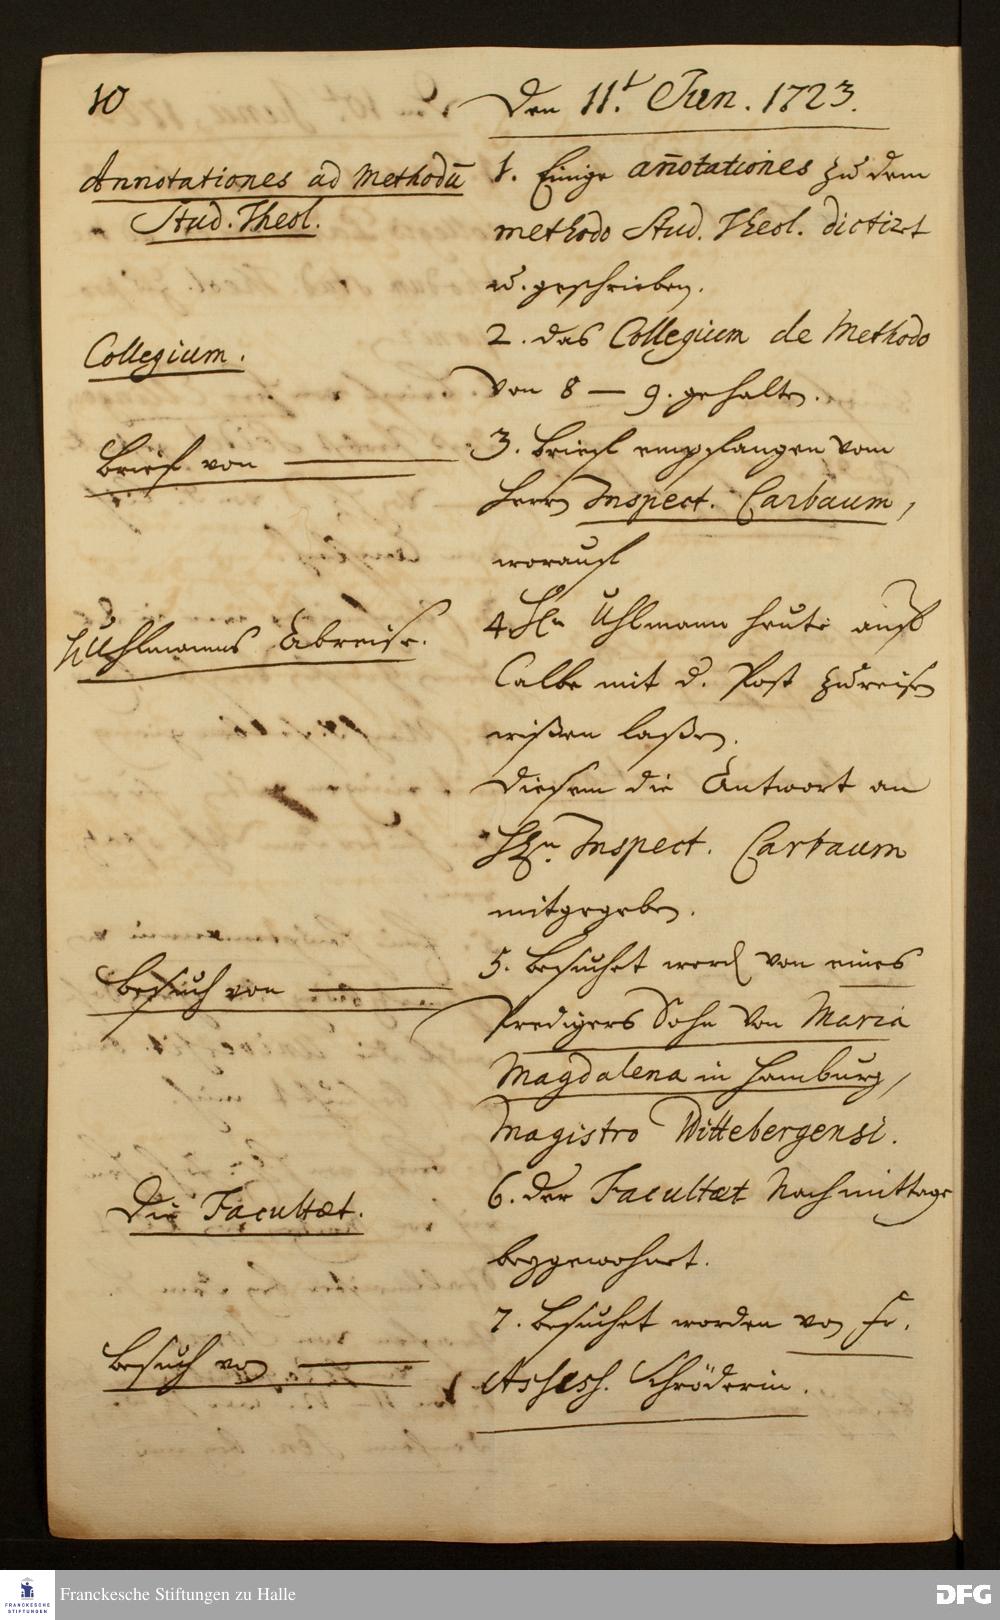 10
Den 11.t Jun. 1723.
Annotationes ad Methodū
Stud. Theol.
1. Einige an̄otationes zu dem
methodo Stud. Theol. dictirt
u. geschrieben.
Collegium.
2. das Collegium de Methodo
von 8 — 9. gehalten.
Brief von —
3. Brieff empfangen vom
Herrn Inspect. Carbaum,
worauff
Uhlmanns Abreise.
4 Hn Uhlmann heute auff
Calbe mit d. Post zu reisen
wißen laßen.
diesem die Antwort an
HEn. Inspect. Carbaum
mitgegeben.
Besuch von —
5. Besuchet word von eines
Predigers Sohn von Maria
Magdalena in Hamburg,
Magistro Wittebergensi.
Die Facultæt.
6. der Facultæt Nachmittage
beygewohnet.
Besuch von —
7. Besuchet worden von Fr.
Assess. Schröderin.
FRANCKESCHE
STIFTUNGEN
Franckesche Stiftungen zu Halle
DFG